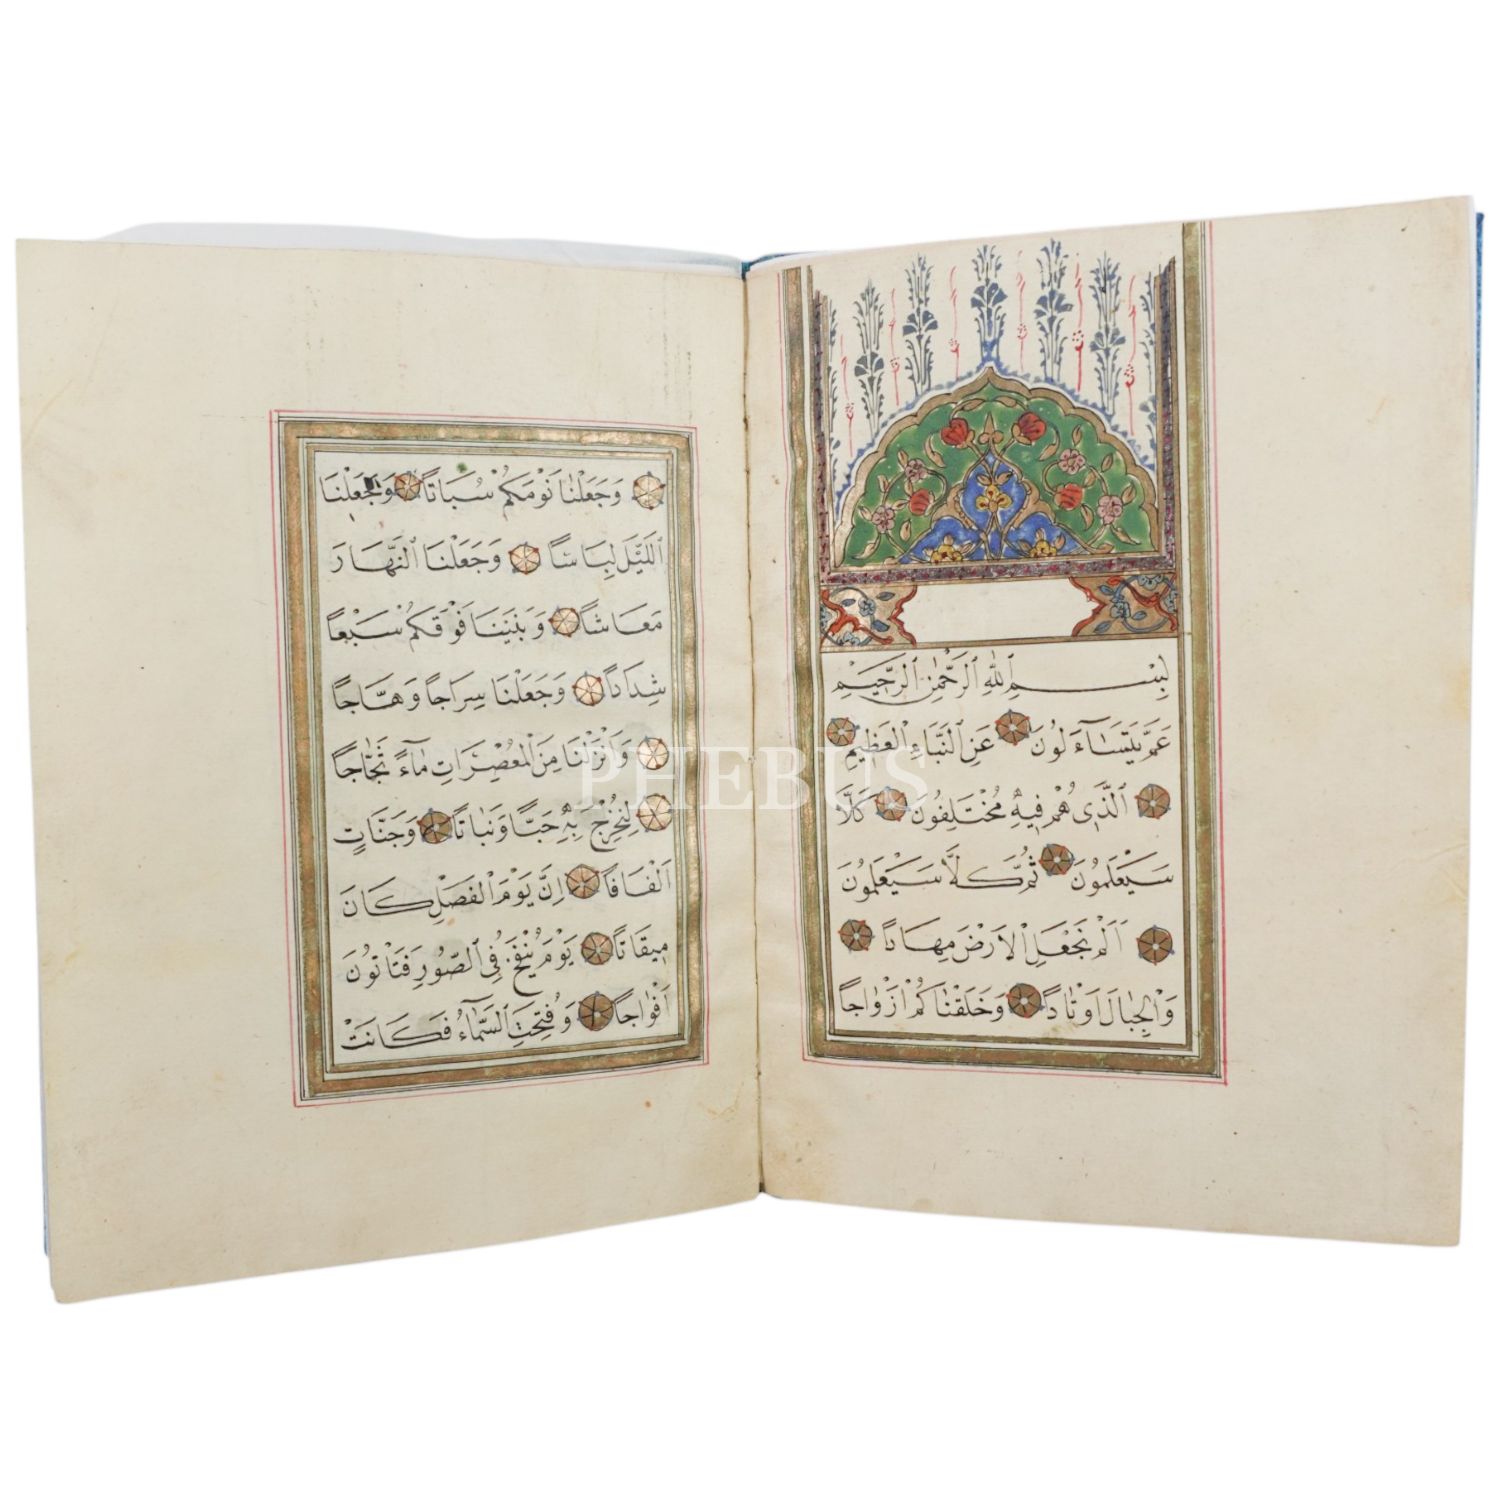 بِسْمِ اللّٰهِ الرَّحْمٰنِ الرَّحِيْمِ
عَمَّ يَتَسَاءَلُونَ عَنِ النَّبَاءِ الْعَظِيْمِ
اَلَّذِى هُمْ فِيهِ مُخْتَلِفُونَ كَلَّا
سَيَعْلَمُونَ ثُمَّ كَلَّا سَيَعْلَمُونَ
اَلَمْ نَجْعَلِ الْاَرْضَ مِهَادًا
وَالْجِبَالَ اَوْتَادًا وَخَلَقْنَاكُمْ اَزْوَاجًا
وَجَعَلْنَا نَوْمَكُمْ سُبَاتًا وَجَعَلْنَا
اللَّيْلَ لِبَاسًا وَجَعَلْنَا النَّهَارَ
مَعَاشًا وَبَنَيْنَا فَوْقَكُمْ سَبْعًا
شِدَادًا وَجَعَلْنَا سِرَاجًا وَهَّاجًا
وَاَنْزَلْنَا مِنَ الْمُعْصِرَاتِ مَاءً ثَجَّاجًا
لِنُخْرِجَ بِهِ حَبًّا وَنَبَاتًا وَجَنَّاتٍ
اَلْفَافًا اِنَّ يَوْمَ الْفَصْلِ كَانَ
مِيقَاتًا يَوْمَ يُنْفَخُ فِى الصُّورِ فَتَاْتُونَ
اَفْوَاجًا وَفُتِحَتِ السَّمَاءُ فَكَانَتْ
PHEBUS